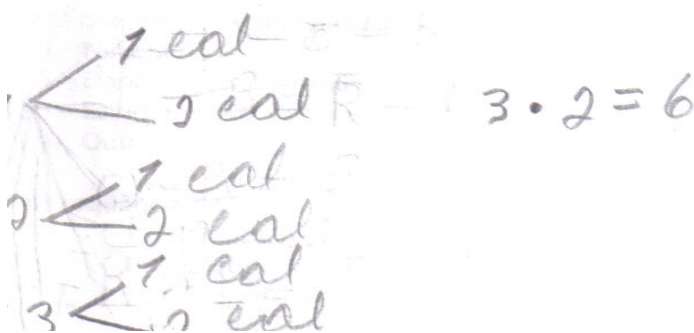 1 cal
2 cal 3 · 2 = 6
1 cal
2
2 cal
1 cal
3
2 cal